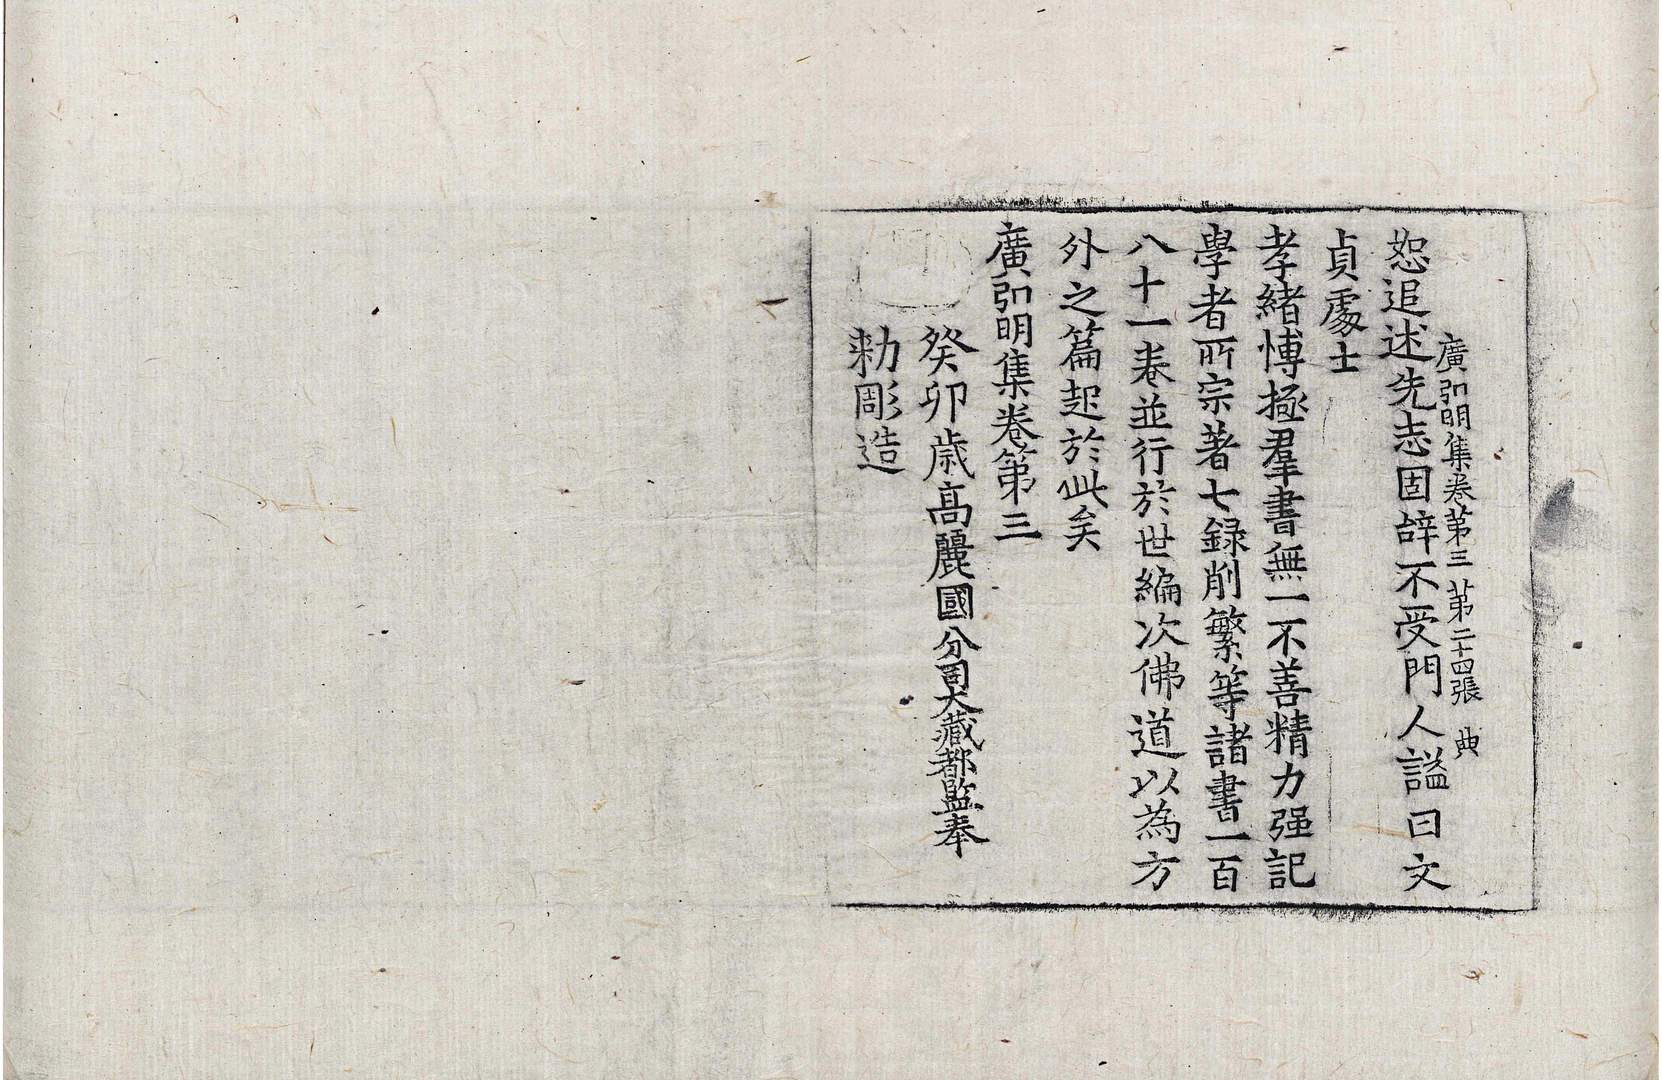 廣弘明集卷第三 第二十四張 典
恕追述先志固辝不受門人謚曰文
貞處士
孝緒博極羣書無一不善精力强記
學者所宗著七録削繁等諸書一百
八十一卷並行於世編次佛道以為方
外之篇起於此矣
廣弘明集卷第三
癸卯歳高麗國分司大藏都監奉
勑彫造